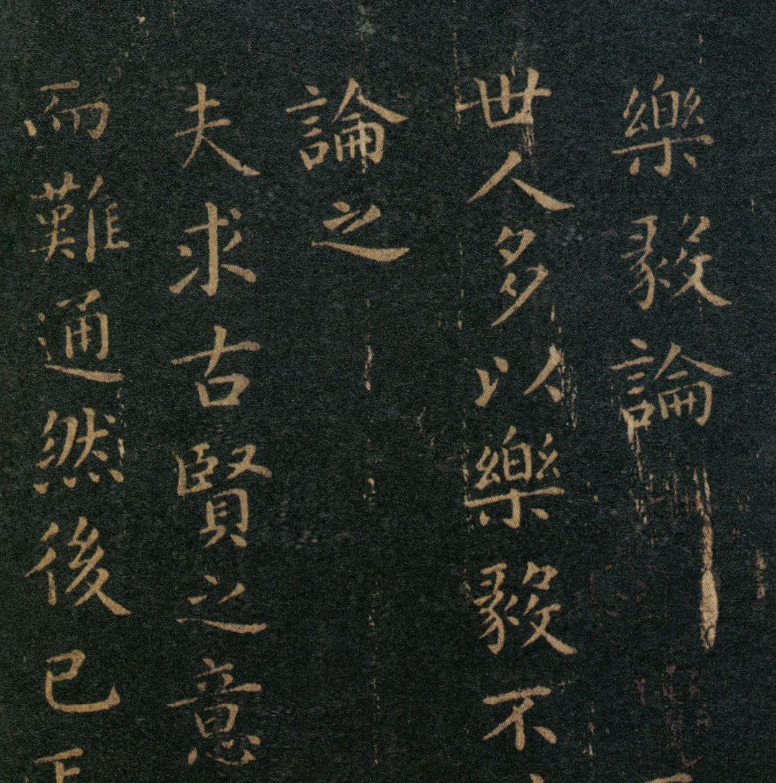 樂毅論
世人多以樂毅不
論之
夫求古賢之意
而難通然後已